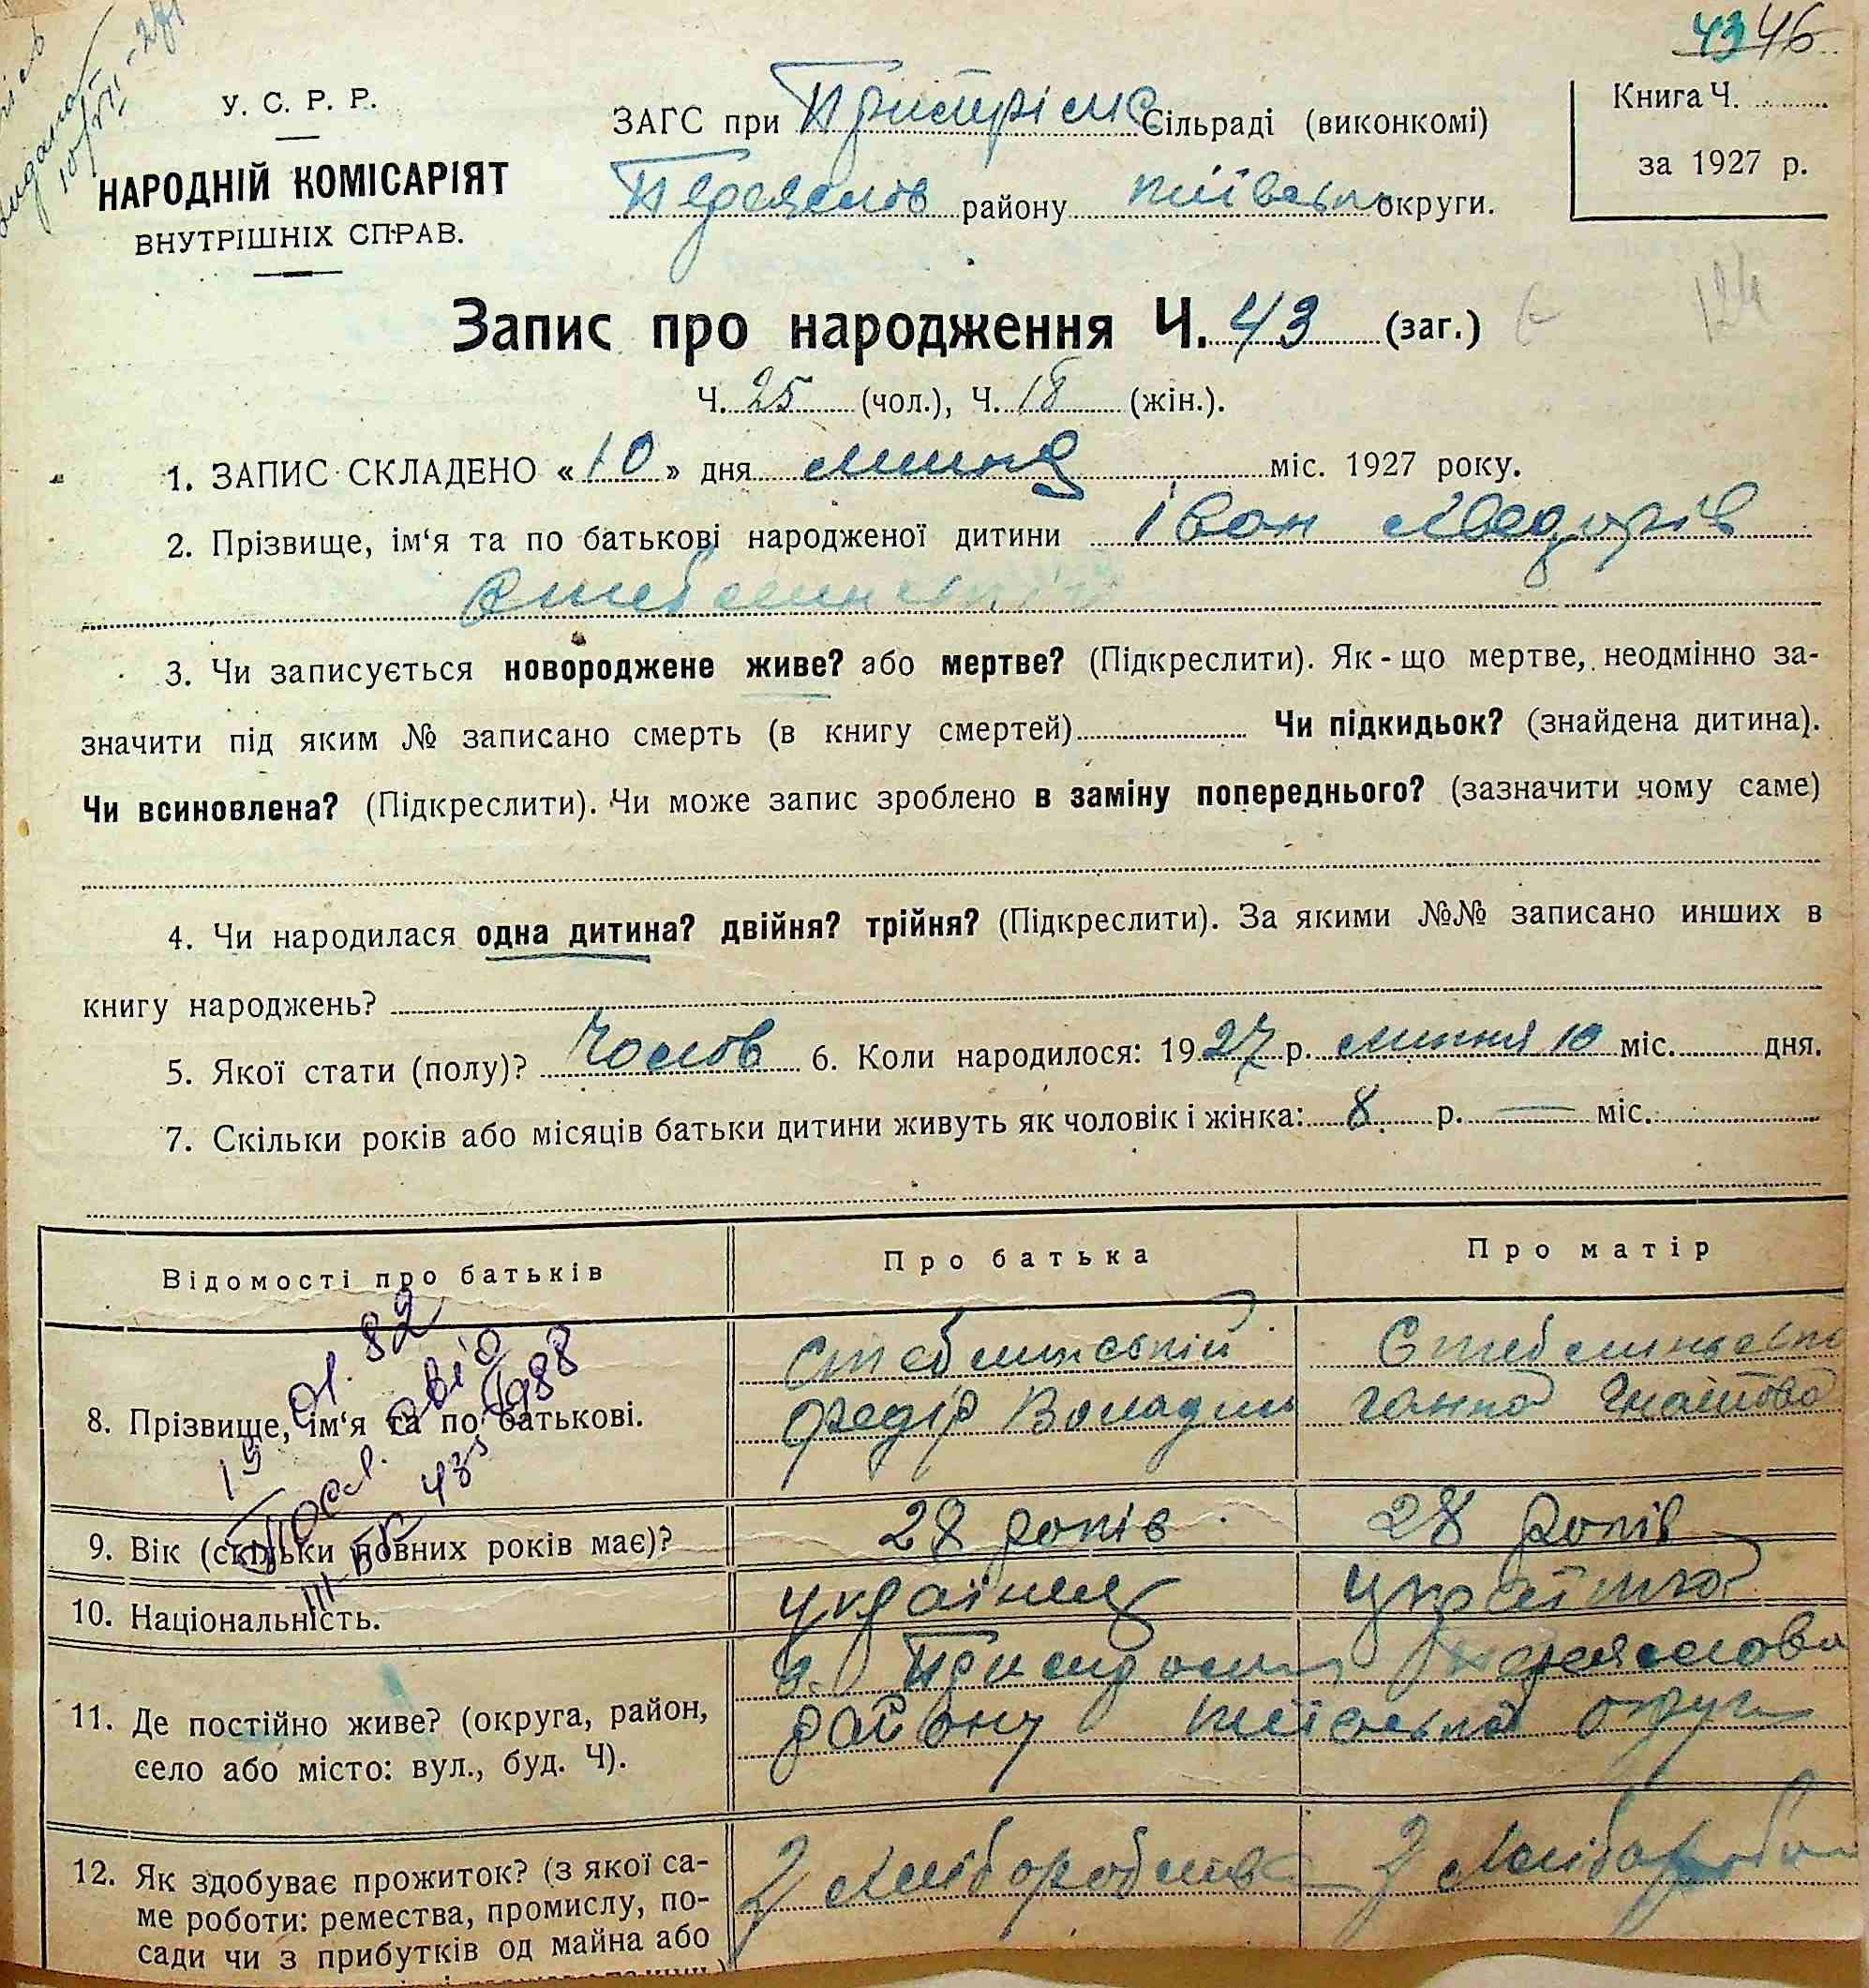 43 46
У. С. Р. Р.
НАРОДНІЙ КОМІСАРІЯТ
ВНУТРІШНІХ СПРАВ.
ЗАГС при Пристрімс Сільраді (виконкомі)
Переяслов району Київсько округи.
Книга Ч.
за 1927 р.
Запис про народження Ч. 43 (заг.)
124
Ч. 25 (чол.), Ч. 18 (жін.).
1. ЗАПИС СКЛАДЕНО «10» дня липня міс. 1927 року.
2. Прізвище, ім‘я та по батькові народженої дитини Іван
Стеблинський
3. Чи записується новороджене живе? або мертве? (Підкреслити). Як-що мертве, неодмінно за-
значити під яким № записано смерть (в книгу смертей) Чи підкидьок? (знайдена дитина).
Чи всиновлена? (Підкреслити). Чи може запис зроблено в заміну попереднього? (зазначити чому саме)
4. Чи народилася одна дитина? двійня? трійня? (Підкреслити). За якими №№ записано инших в
книгу народжень?
5. Якої стати (полу)? Чолов 6. Коли народилося: 1927 р. липня 10 міс. дня.
7. Скільки років або місяців батьки дитини живуть як чоловік і жінка: 8 р. — міс.
Відомості про батьків Про батька Про матір
8. Прізвище, ім‘я та по батькові.
Стеблинський Стеблинсько
Федір Володим Ганна Гнатова
19 01. 82
1988
III-БК 435
9. Вік (скільки повних років має)? 28 років 28 років
10. Національність. українец українка
11. Де постійно живе? (округа, район,
село або місто: вул., буд. Ч).
с. Пристроми Переяслова
району Київської округи
12. Як здобуває прожиток? (з якої са-
ме роботи: ремества, промислу, по-
сади чи з прибутків од майна або
З хліборобства З хлібороб